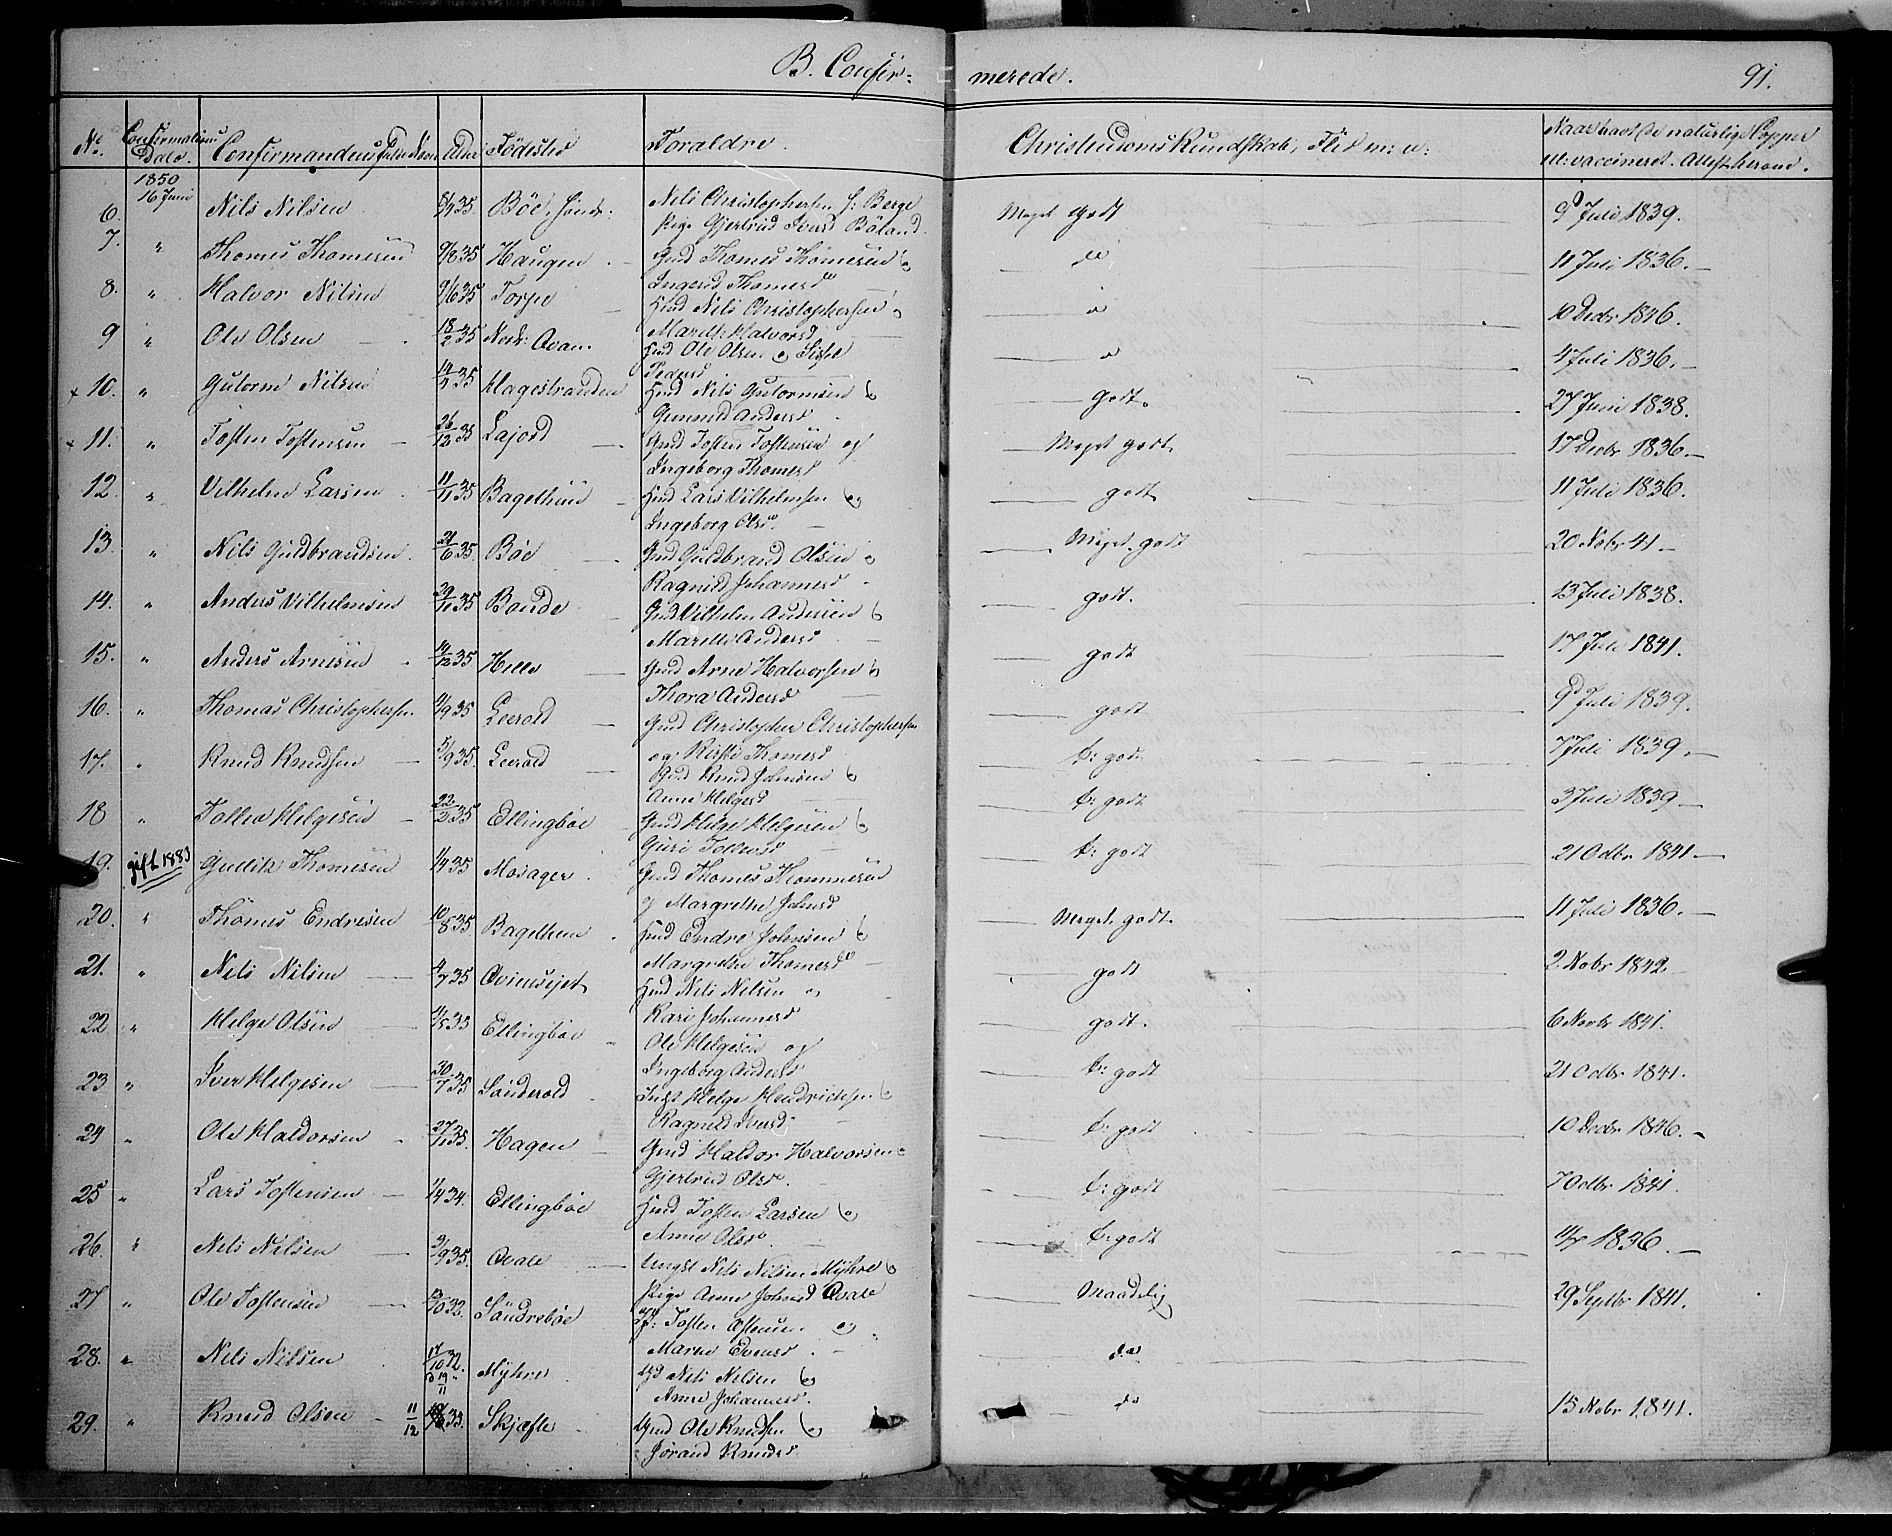 B. Confir-merede. 91.
No. Confirmations Dato. Confirmandens fulde Navn Alder Födested Foraldre. Christendoms Kundskab, Flid m: v: Naar havt de naturlige Copper el: vaccineret. Attest herom.
1850
16 Juni
6. Nils Nilsen 35 Böe, Söndr: Nils Christophersen S: Berge Meget godt 9d Juli 1839.
Pige Gjertrud Iversd Böland.
7. " Thomes Thomesen 9/8 35 Haugen Gmd Thomes Thomesen og do 11 Juli 1836.
Ingerid Thomesd
8. " Halvor Nilsen 9/6 35 Torpe Hmd Nils Christophersen og 10 Decbr 1846.
Marith Halvorsd
9 " Ole Olsen 18/2 35 Nord: Qvam. Hmd Ole Olsen og Sissel 4 Juli 1836.
Pedersd
+ 10. " Gutorm Nilsen 35 Hagestranden Hmd Nils Gutormsen og godt. 27 Juni 1838.
Gunnild Andersd
+ 11. " Tosten Tostensen 26/12 35 Lajord Gmd Tosten Tostensen og Meget godt. 17 Decbr 1836.
Ingeborg Thomesd
12. " Vilhelm Larsen 11/11 35 Bagethun Hmd Lars Vilhelmsen og godt 11 Juli 1836.
Ingeborg Olsd.
13. " Nils Guldbrandsen 21/6 35 Böe Gmd Guldbrand Olsen og Meget godt 20 Nobr 41
Ragnild Johannesd
14. " Anders Vilhelmsen 29/11 35 Bonde Gmd Vilhelm Andersen og godt. 13 Juli 1838.
Marith Andersd
15. " Anders Arnesen 14/12 35 Helle Gmd Arne Halvorsen og godt 17 Juli 1841.
Thora Andersd
16. " Thomas Christophersen 35 Leerold Gmd Christopher Christophersen godt 9d Juli 1839.
og Kirsti Thomesd
17. " Knud Knudsen 5/9 35. Leerold Gmd Knud Johnsen og t: godt 7 Juli 1839.
Anne Helgesd
18 " Tollev Helgesen 22/2 35 Ellingböe Gmd Helge Helgesen og t: godt 3 Juli 1839
Guri Tollevsd
19. gift 1883 Gullik Thomesen 1/4 35 Mosager Gmd Thomes Thommesen t: godt 21 Octbr 1841
og Margrethe Johnsd
20. " Thomes Endresen 10/8 35 Bagethun Hmd Endre Johnsen og Meget godt. 11 Juli 1836.
Margrethe Thomesd
21. " Nils Nilsen 4/7 35 Hmd Nils Nilsen og godt 2 Nobr 1842
Kari Johannesd
22 " Helge Olsen 35 Ellingböe Ole Helgesen og godt. 6 Novbr 1841.
Ingeborg Andersd
23 " Iver Helgesen 30/7 35 Sönderold Inst Helge Hendrichsen og t: godt 21 Octbr 1841.
Ragnild Iversd
24 " Ole Haldorsen 27/11 35. Hagen Gmd Haldor Halvorsen og t: godt 10 Decbr 1846.
Gjertrud Olsd.
25 " Lars Tostensen 1/4 34. Ellingböe Hmd Tosten Larsen og t: godt 7 Octbr 1841.
Anne Olsd
26. " Nils Nilsen 3/9 35. Qvale Ungk Nils Nilsen Myhre og t: godt 11/7 1836.
Pige Anne Johnsd Qvale
27 " Ole Tostensen 32. Söndreböe Tosten og Maadelig 29 Septbr 1841.
Marhe
28. " Nils Nilsen 17/10 32. Myhre Nils Nilsen og do
Anne Johannesd.
29. " Knud Olsen 11/12 33. Skjæfle Gmd Ole Knudsen og do 15 Nobr 1841.
Jørand Knudsd